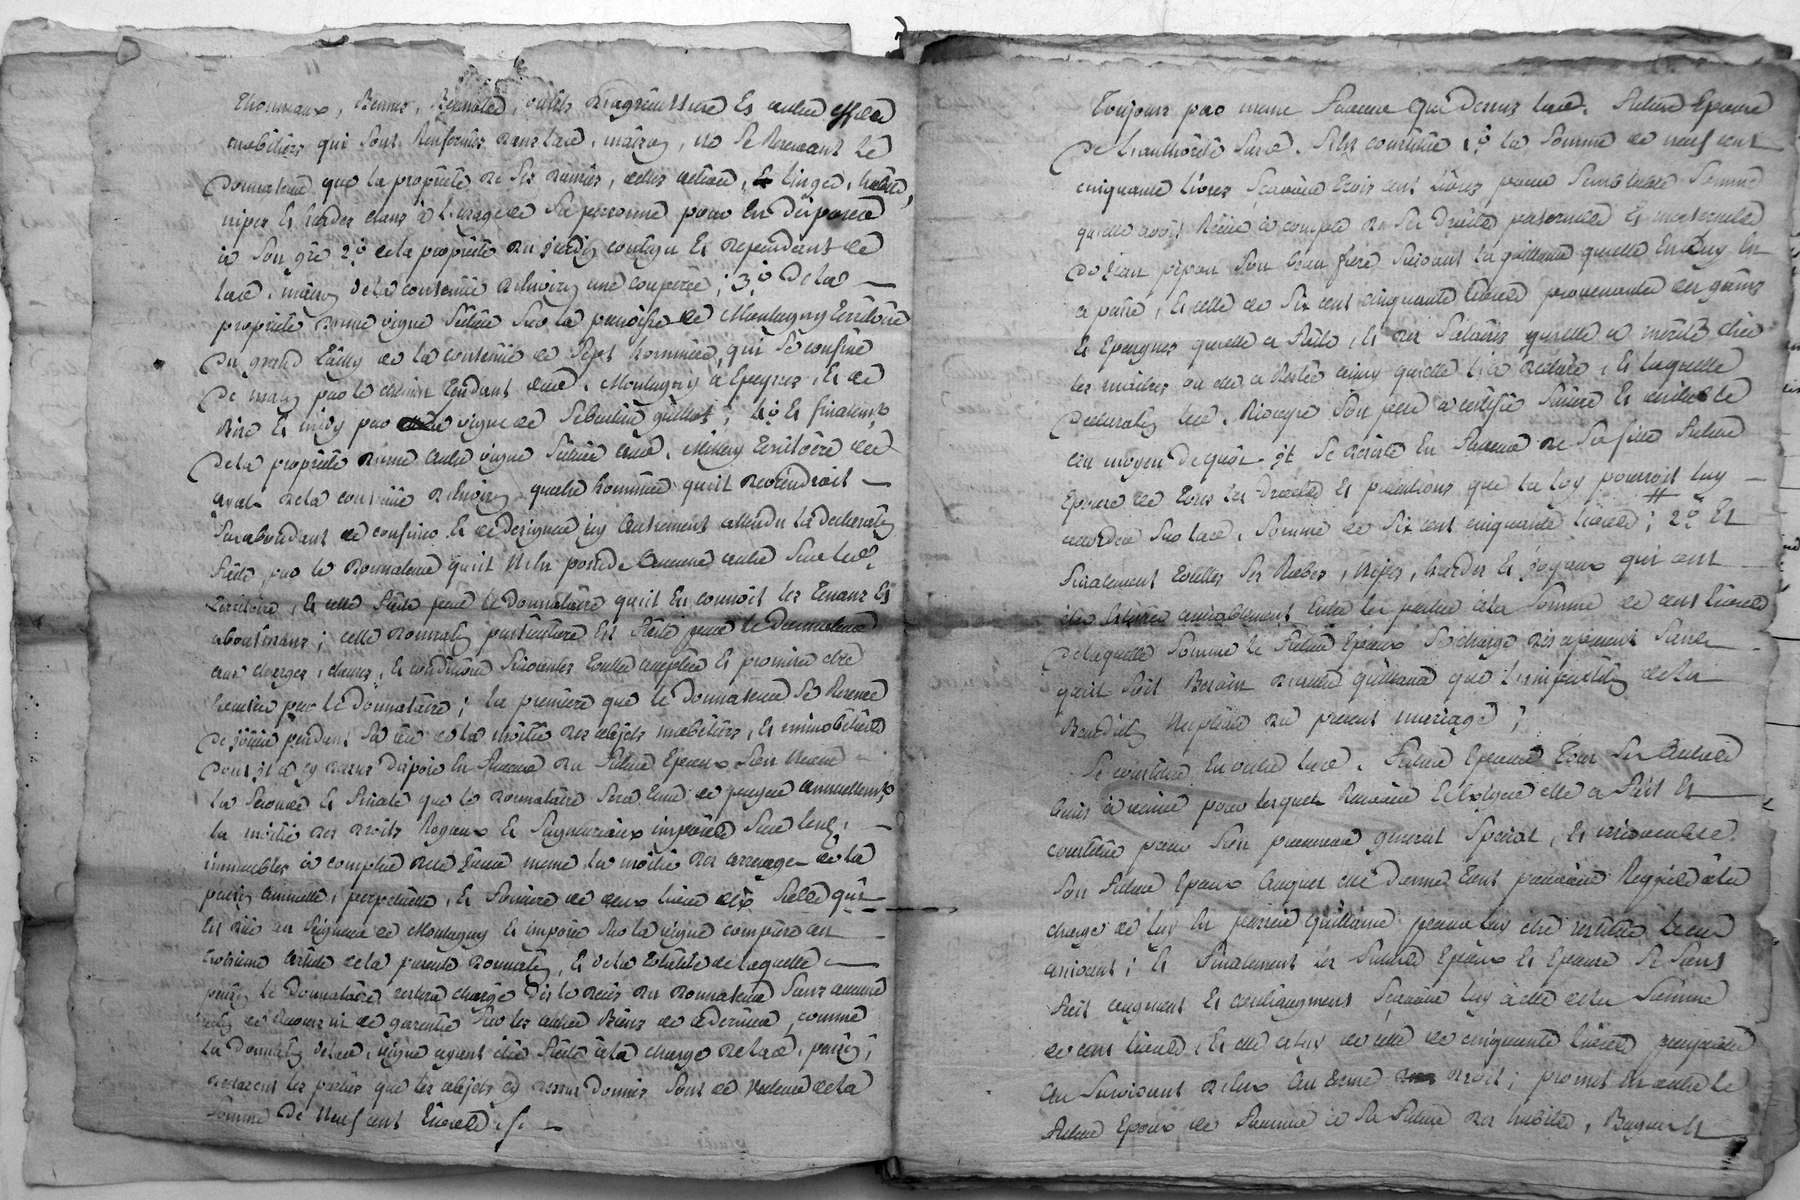 Thonneaux, Bennes, outils d'agriculture Et autres effets
mobiliers qui sont Renfermés dans lad. maison, ne se Reservant Le
Donnateur que la propriété de ses danrées, Linges,
nipes Et hardes claus à L'usage de Sa personne pour En disposer
à Son gré 2.º de la propriété du jardin contigu Et dependant de
lad. maison de la contenüe d'Environ une couperée; 3.º De la
propriété d'une vigne Située Sur la paroisse de Montagny Territoire
Du grand de la contenüe de Sept hommées, qui Se confine
De matin par le chemin Tendant dud. Montagny à Epeysses, Et de
Bise Et midy par vigne de Sebastien ; 4.º Et finalem.t
De la propriété d'une autre vigne Située aud. Millery Territoire des
de la contenüe d'Environ quatre hommées qu'il deviendroit
Surabondant de confiner Et de designer icy autrement attendu la declaration
faite par le Donnateur qu'il N'En possede aucune autre Sur led.
Territoire, Et celle faite par le Donnataire qu'il En connoit les Tenans Et
aboutissans; cette donnation particuliere Est faite par le Donnateur
aux charges, clauses, Et conditions Suivantes Toutes acceptées Et promises Etre
Executées par le Donnataire; la premiere que le Donnateur Se Reserve
De joüir pendant Sa vie de la moitié des objets mobiliers, Et immobiliers
Dont il a cy dessus disposé En faveur du futur Epoux Son Neveu
La Seconde Et finale que le Donnataire Sera Tenu de payer annuellem.t
la moitié des droits Royaux Et Seigneuriaux imposés Sur les
immeubles à compter de ce jour meme la moitié des arrerages de la
pension annuelle, perpetuelle, Et fonciere de deux livres dix Sols qui
Est düe au Seigneur de Montagny Et imposée Sur la vigne comprise en
troisieme article de la presente donnation, Et de la totalité de laquelle
pension le Donnataire restera chargé dès le decès du donnateur Sans aucune
de Recours ni de garentie Sur les autres Biens de ce dernier, comme
la donnation de lad. vigne ayant été faite à la charge de lad. pension;
declarent les parties que les objets cy dessus donnés Sont de valeur de la
Somme De Neuf cent Livres. /. —
Toujours par meme faveur que dessus lad. future Epouse
De L'authorité Susd. S'Est constitué 1.º la Somme de neuf cent
cinquante livres, Sçavoir trois cent livres pour Semblable Somme
qu'elle avoit Reçüe à compte de Ses Droits paternels Et maternels
De Jean Son beau frere Suivant la quittance qu'elle En
a passé, Et celle de Six cent cinquante livres provenantes des gains
Et Epargnes qu'elle a faits, Et des Salaires qu'elle a mérité chez
les maitres ou elle a Resté ainsy qu'elle L'a declaré, Et laquelle
Declaration led. Son pere a certifié Sincere Et veritable
au moyen De quoi il Se desiste En faveur de Sa fille future
Epouse de Tous les Droits Et pretentions que la loy pourroit luy
accorder Sur lad. Somme de Six cent cinquante livres; 2.º Et
finalement Toutes Ses Robes, Nipes, hardes Et joyaux qui ont
été Estimés amiablement Entre les parties à la Somme de cent livres
De laquelle Somme le futur Epoux Se charge dès à present Sans
qu'il Soit Besoin d'autre quittance que de la
Benediction Nuptiale du present mariage;
Se constitue En outre lad. future Epouse Tous Ses autres
droits à venir pour lesquels Recevoir Et Exiger elle a fait Et
constitué pour Son procureur general Special, Et irrevocable
Son futur Epoux auquel elle donne Tout pouvoir Requis à la
charge de luy En passer quittance pour luy être restitué le cas
arrivant; Et finalement les futurs Epoux Et Epouse Se Sont
fait augment Et contr'augment Sçavoir luy à elle de la Somme
de cent livres, Et elle à luy de celle de cinquante livres payables
au Survivant d'Eux au terme de droit; promet En outre le
futur Epoux de fournir à Sa future des habits, Bagues Et